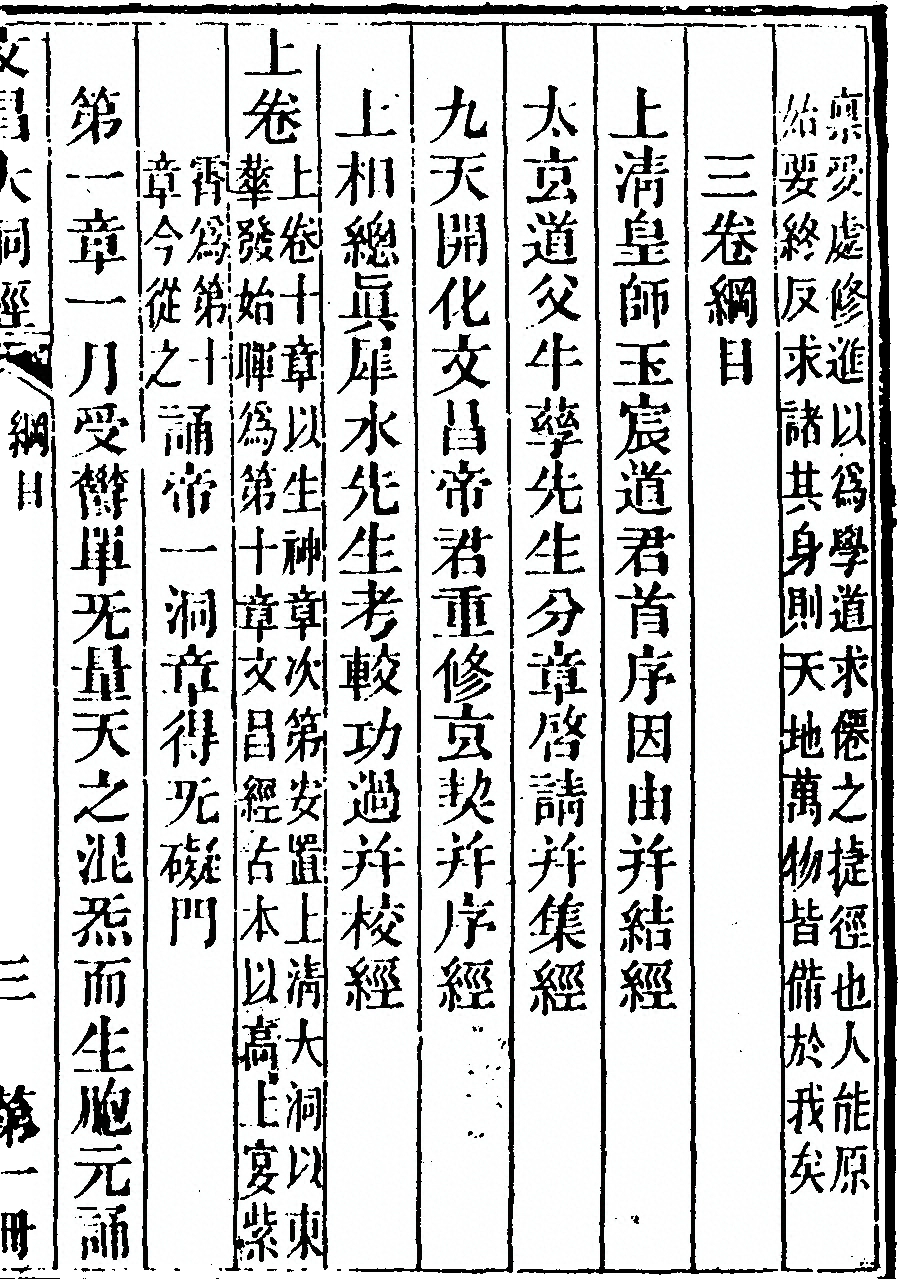 稟受處修進以爲學道求僊之捷徑也人能原
始要終反求諸其身則天地萬物皆備於我矣
三卷綱目
上清皇師玉宸道君首序因由并結經
太玄道父牛孳先生分章啓請并集經
九天開化文昌帝君重修玄契并序經
上相總眞犀水先生考較功過并校經
上卷
上卷十章以生神章次第安置上淸大洞以東
華發始暉爲第十章文昌經古本以高上宴紫
霄爲第十
章今從之
誦帝一洞章得旡礙門
第一章一月受鬱單旡量天之混炁而生胞元誦
文昌大洞經
綱目
三
第一冊